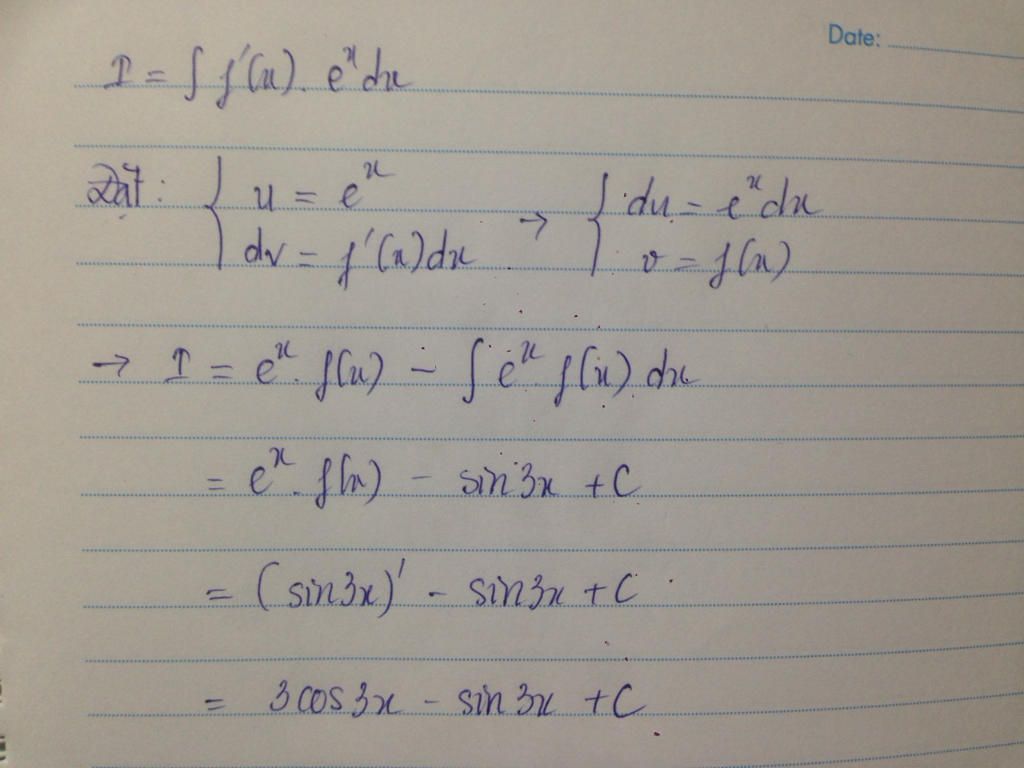 Date:
I = ∫ f'(x). eˣdx
Đặt: { u = eˣ → { du = eˣdx
dv = f'(x)dx v = f(x)
→ I = eˣ. f(x) - ∫ eˣ. f(x) dx
= eˣ. f(x) - sin3x + C
= (sin3x)' - sin3x + C
= 3cos3x - sin3x + C